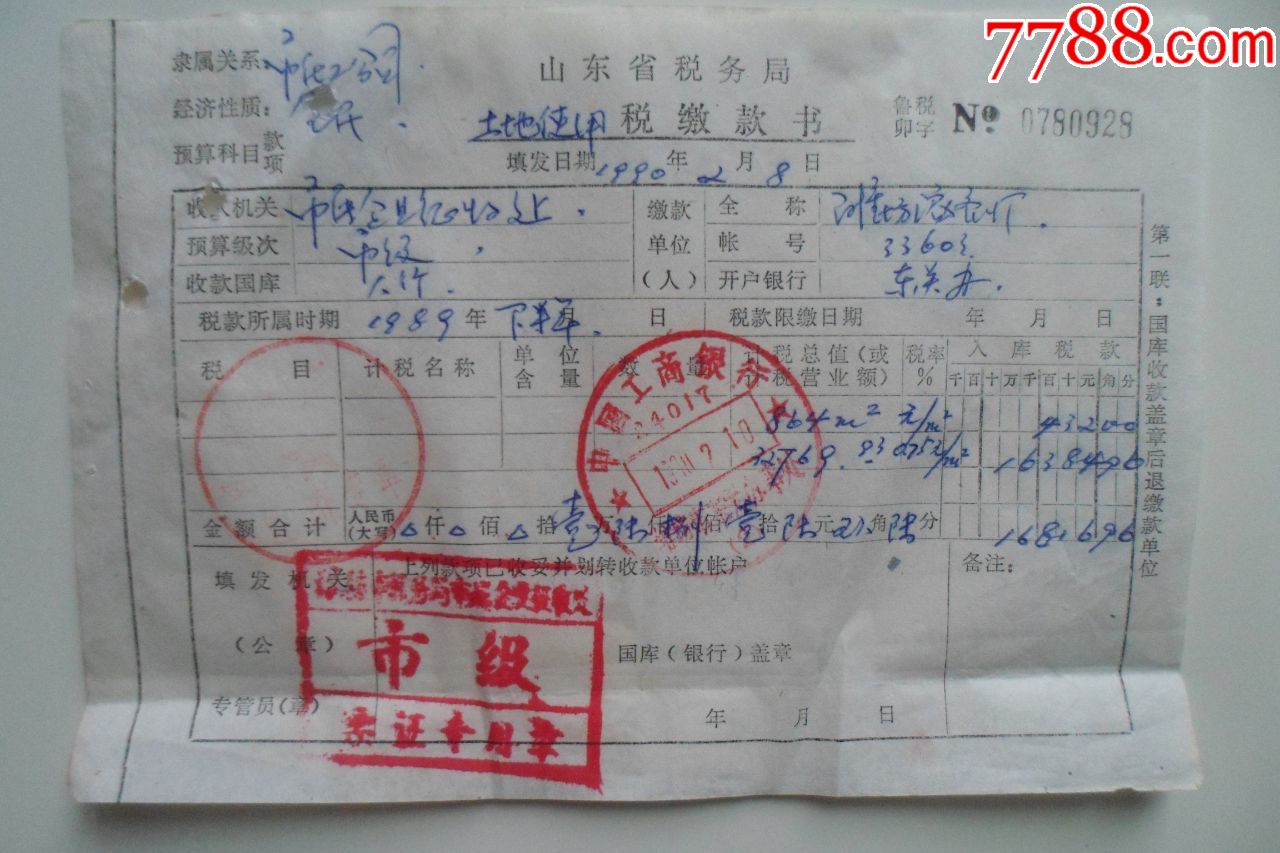 7788.com
隶属关系:
山东省税务局
经济性质: 全民
土地使用税缴款书
鲁税卯字 № 0780928
预算科目 款项
填发日期 1990年 2月 8日
收入机关
缴款单位(人)
全称
预算级次 市级
帐号 33603
收款国库 人行
开户银行 东关办
税款所属时期 1989年 下半年 月 日
税款限缴日期 年 月 日
税目 计税名称 单位含量 数量 计税总值(或计税营业额) 税率% 入库税款
千百十万千百十元角分
864m² 元/m² 43200
32769.93 0.5元/m² 1638496
金额合计 人民币(大写) 仟 佰 拾壹万陆仟捌佰壹拾陆元玖角陆分 1681696
上列款项已收妥并划转收款单位帐户
备注:
填发机关
(公章)
国库(银行)盖章
专管员(章)
年 月 日
第一联:国库收款盖章后退缴款单位
中国工商银行
24017
市级
票证专用章